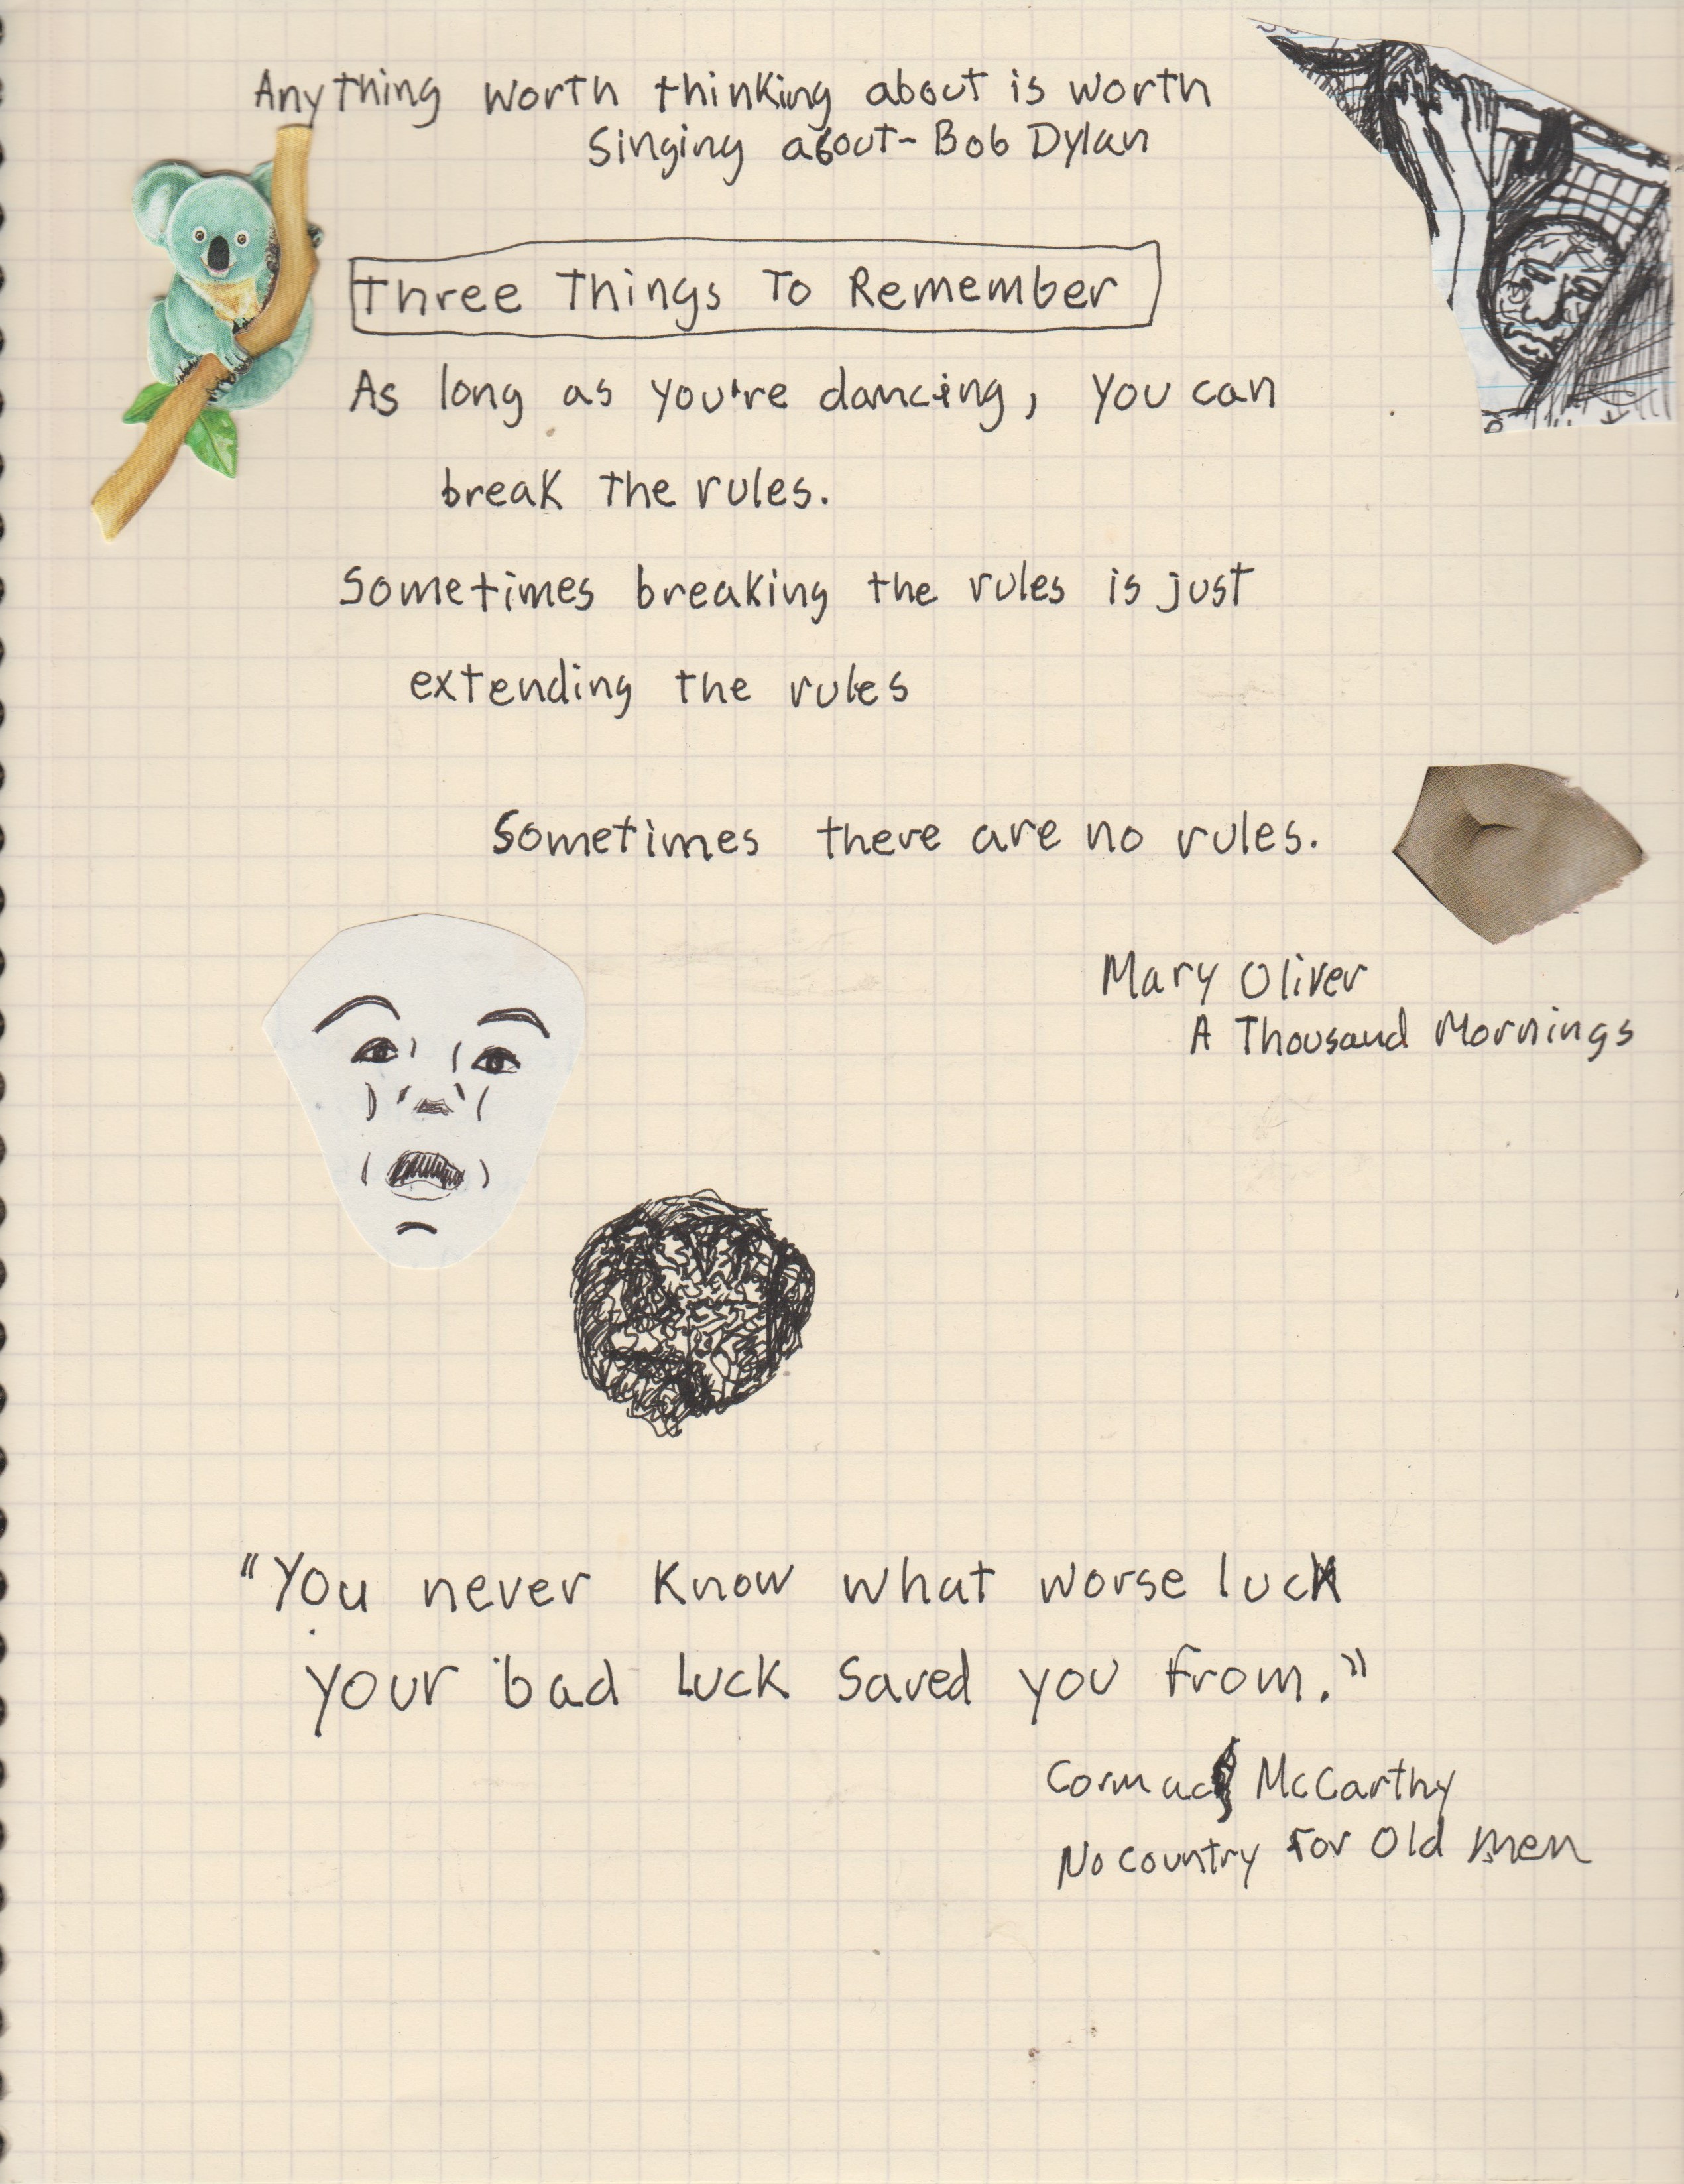 Anything worth thinking about is worth
Singing about - Bob Dylan
Three Things To Remember
As long as you're dancing, you can
break the rules.
Sometimes breaking the rules is just
extending the rules
Sometimes there are no rules.
Mary Oliver
A Thousand Mornings
"You never know what worse luck
your bad luck saved you from."
Cormac McCarthy
No Country For Old Men